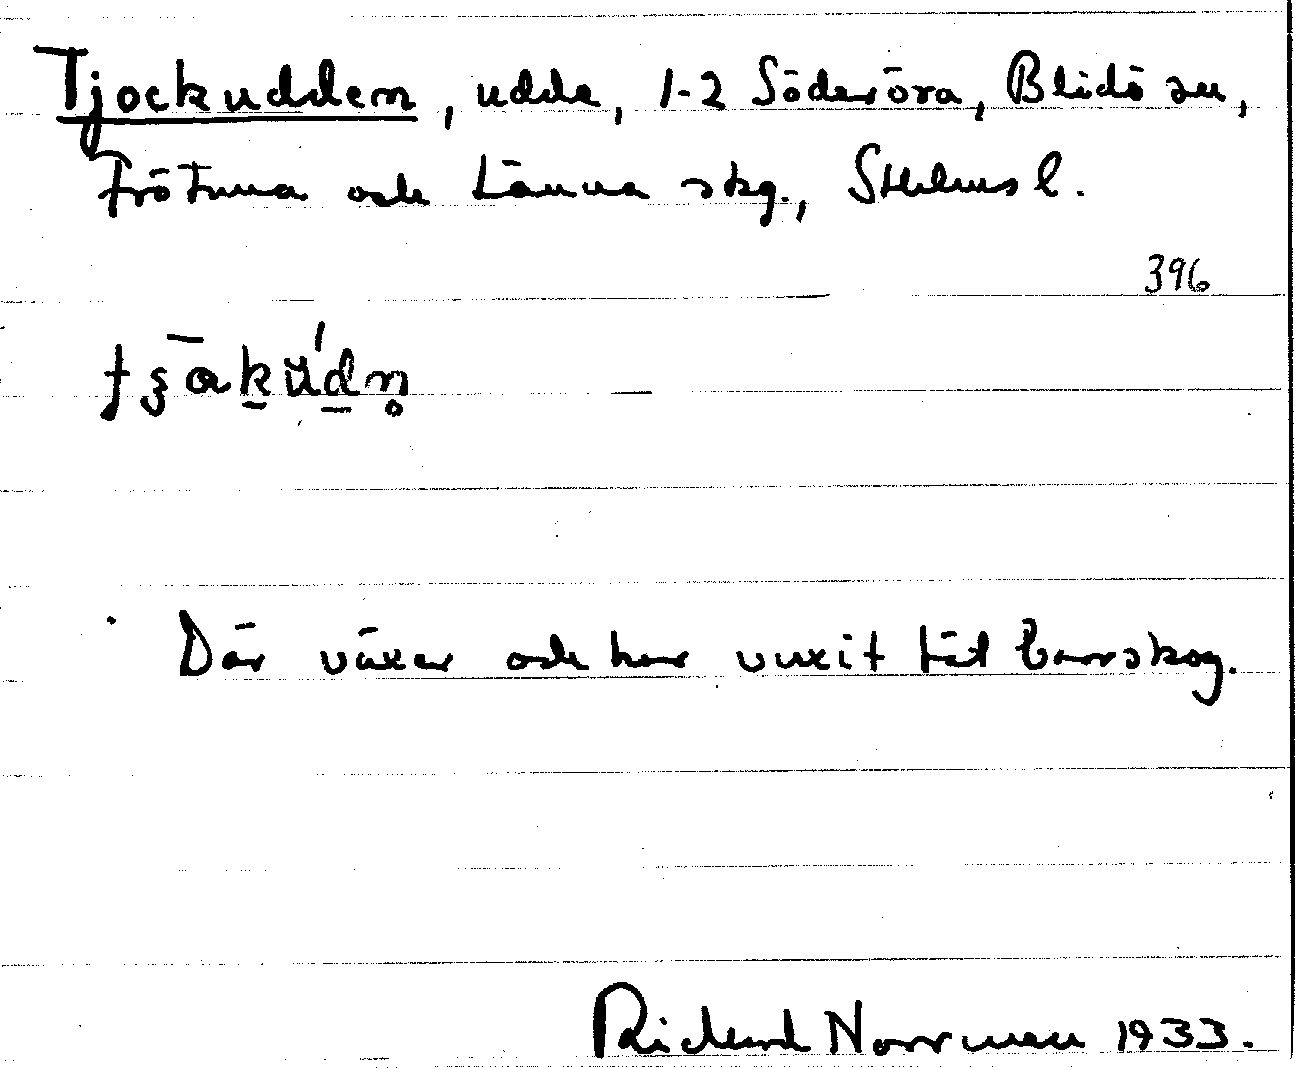 Tjockudden, udde, 1-2 Söderöra, Blidö sn,
Frötuna och Länna skg., Sthlms l.
396
Där växer och har vuxit tät barrskog.
Rickard Norrman 1933.